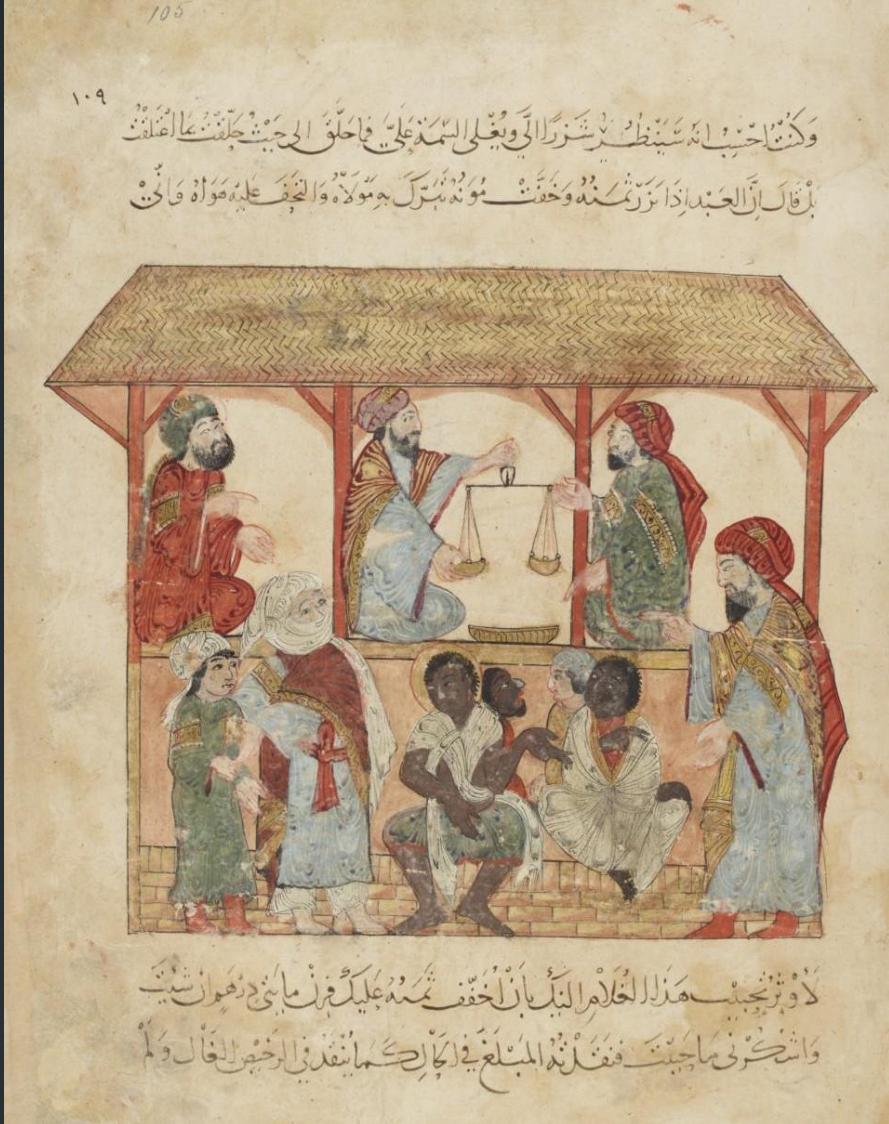 105
١٠٩
وكنت احسب انه سينظر شزرا الي ويغلي السيمة علي فما حلق الى حيث حلقت بما اعتلقت
بل قال ان العبد اذا نزر ثمنه وخفت مونه تبرك به مولاه والتحف عليه هواه واني
لاوثر تحبيب هذا الغلام اليك بان اخفف ثمنه عليك فزن مايتي درهم ان شيت
واشكرني ما حييت فنقدته المبلغ في الحال كما ينقد في الرخيص الغال ولم